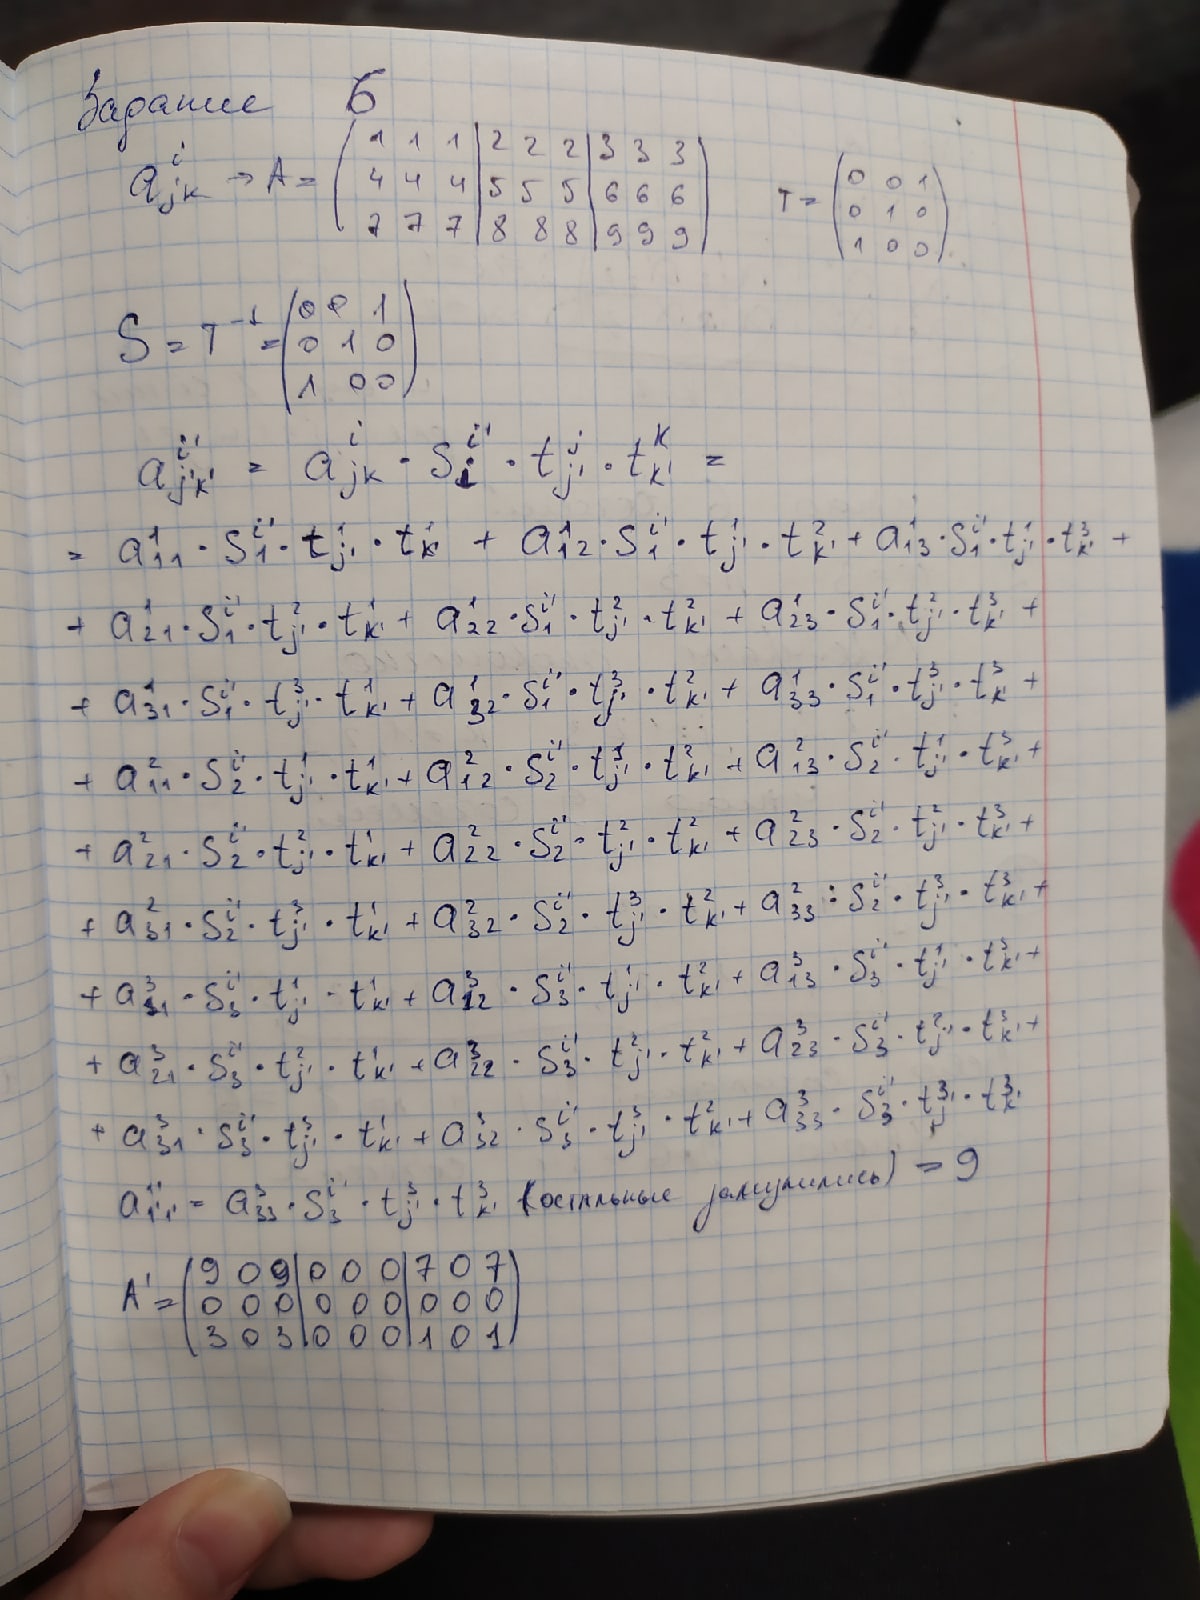 Задание 6
a^i_{jk} → A = (1 1 1 | 2 2 2 | 3 3 3
4 4 4 | 5 5 5 | 6 6 6
7 7 7 | 8 8 8 | 9 9 9)
T = (0 0 1
0 1 0
1 0 0)
S = T^{-1} = (0 0 1
0 1 0
1 0 0)
a^{i'}_{j'k'} = a^i_{jk} · S^{i'}_i · t^j_{j'} · t^k_{k'} =
= a^1_{11} · S^{i'}_1 · t^1_{j'} · t^1_{k'} + a^1_{12} · S^{i'}_1 · t^1_{j'} · t^2_{k'} + a^1_{13} · S^{i'}_1 · t^1_{j'} · t^3_{k'} +
+ a^1_{21} · S^{i'}_1 · t^2_{j'} · t^1_{k'} + a^1_{22} · S^{i'}_1 · t^2_{j'} · t^2_{k'} + a^1_{23} · S^{i'}_1 · t^2_{j'} · t^3_{k'} +
+ a^1_{31} · S^{i'}_1 · t^3_{j'} · t^1_{k'} + a^1_{32} · S^{i'}_1 · t^3_{j'} · t^2_{k'} + a^1_{33} · S^{i'}_1 · t^3_{j'} · t^3_{k'} +
+ a^2_{11} · S^{i'}_2 · t^1_{j'} · t^1_{k'} + a^2_{12} · S^{i'}_2 · t^1_{j'} · t^2_{k'} + a^2_{13} · S^{i'}_2 · t^1_{j'} · t^3_{k'} +
+ a^2_{21} · S^{i'}_2 · t^2_{j'} · t^1_{k'} + a^2_{22} · S^{i'}_2 · t^2_{j'} · t^2_{k'} + a^2_{23} · S^{i'}_2 · t^2_{j'} · t^3_{k'} +
+ a^2_{31} · S^{i'}_2 · t^3_{j'} · t^1_{k'} + a^2_{32} · S^{i'}_2 · t^3_{j'} · t^2_{k'} + a^2_{33} · S^{i'}_2 · t^3_{j'} · t^3_{k'} +
+ a^3_{11} · S^{i'}_3 · t^1_{j'} · t^1_{k'} + a^3_{12} · S^{i'}_3 · t^1_{j'} · t^2_{k'} + a^3_{13} · S^{i'}_3 · t^1_{j'} · t^3_{k'} +
+ a^3_{21} · S^{i'}_3 · t^2_{j'} · t^1_{k'} + a^3_{22} · S^{i'}_3 · t^2_{j'} · t^2_{k'} + a^3_{23} · S^{i'}_3 · t^2_{j'} · t^3_{k'} +
+ a^3_{31} · S^{i'}_3 · t^3_{j'} · t^1_{k'} + a^3_{32} · S^{i'}_3 · t^3_{j'} · t^2_{k'} + a^3_{33} · S^{i'}_3 · t^3_{j'} · t^3_{k'}
a^{1'}_{1'1'} = a^3_{33} · S^{i'}_3 · t^3_{j'} · t^3_{k'} (остальные занулились) = 9
A' = (9 0 9 | 0 0 0 | 7 0 7
0 0 0 | 0 0 0 | 0 0 0
3 0 3 | 0 0 0 | 1 0 1)